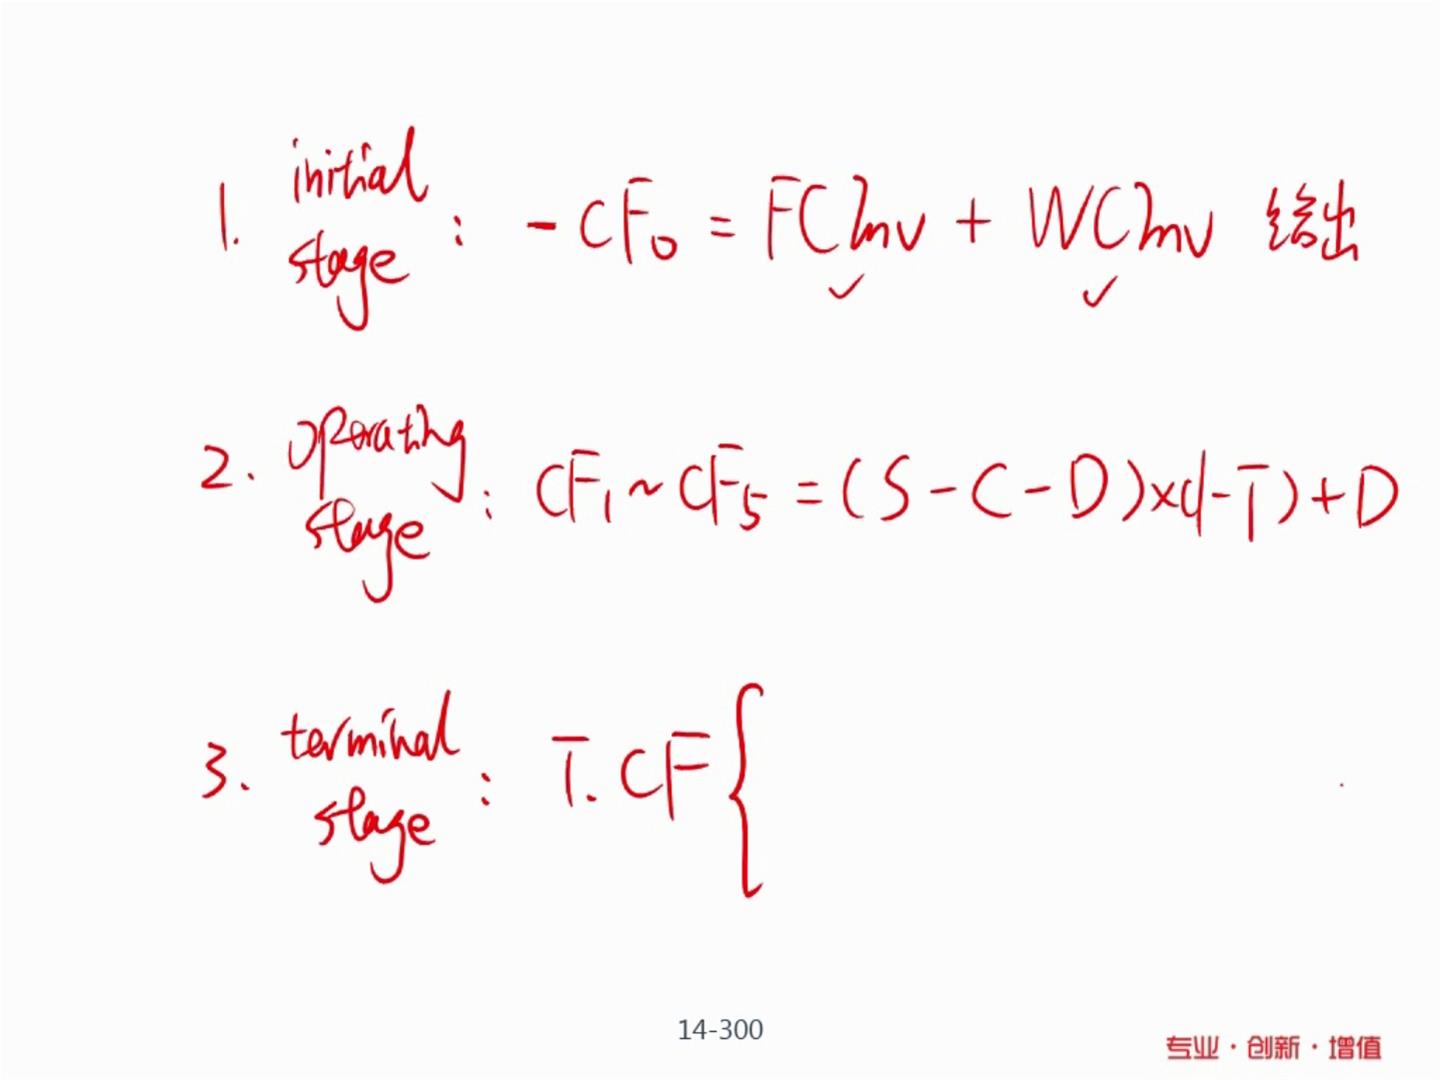 1. initial stage : - CF₀ = FCInv + WCInv 给出
2. operating stage : CF₁ ~ CF₅ = (S - C - D) × (1 - T) + D
3. terminal stage : T.CF {
14-300
专业·创新·增值